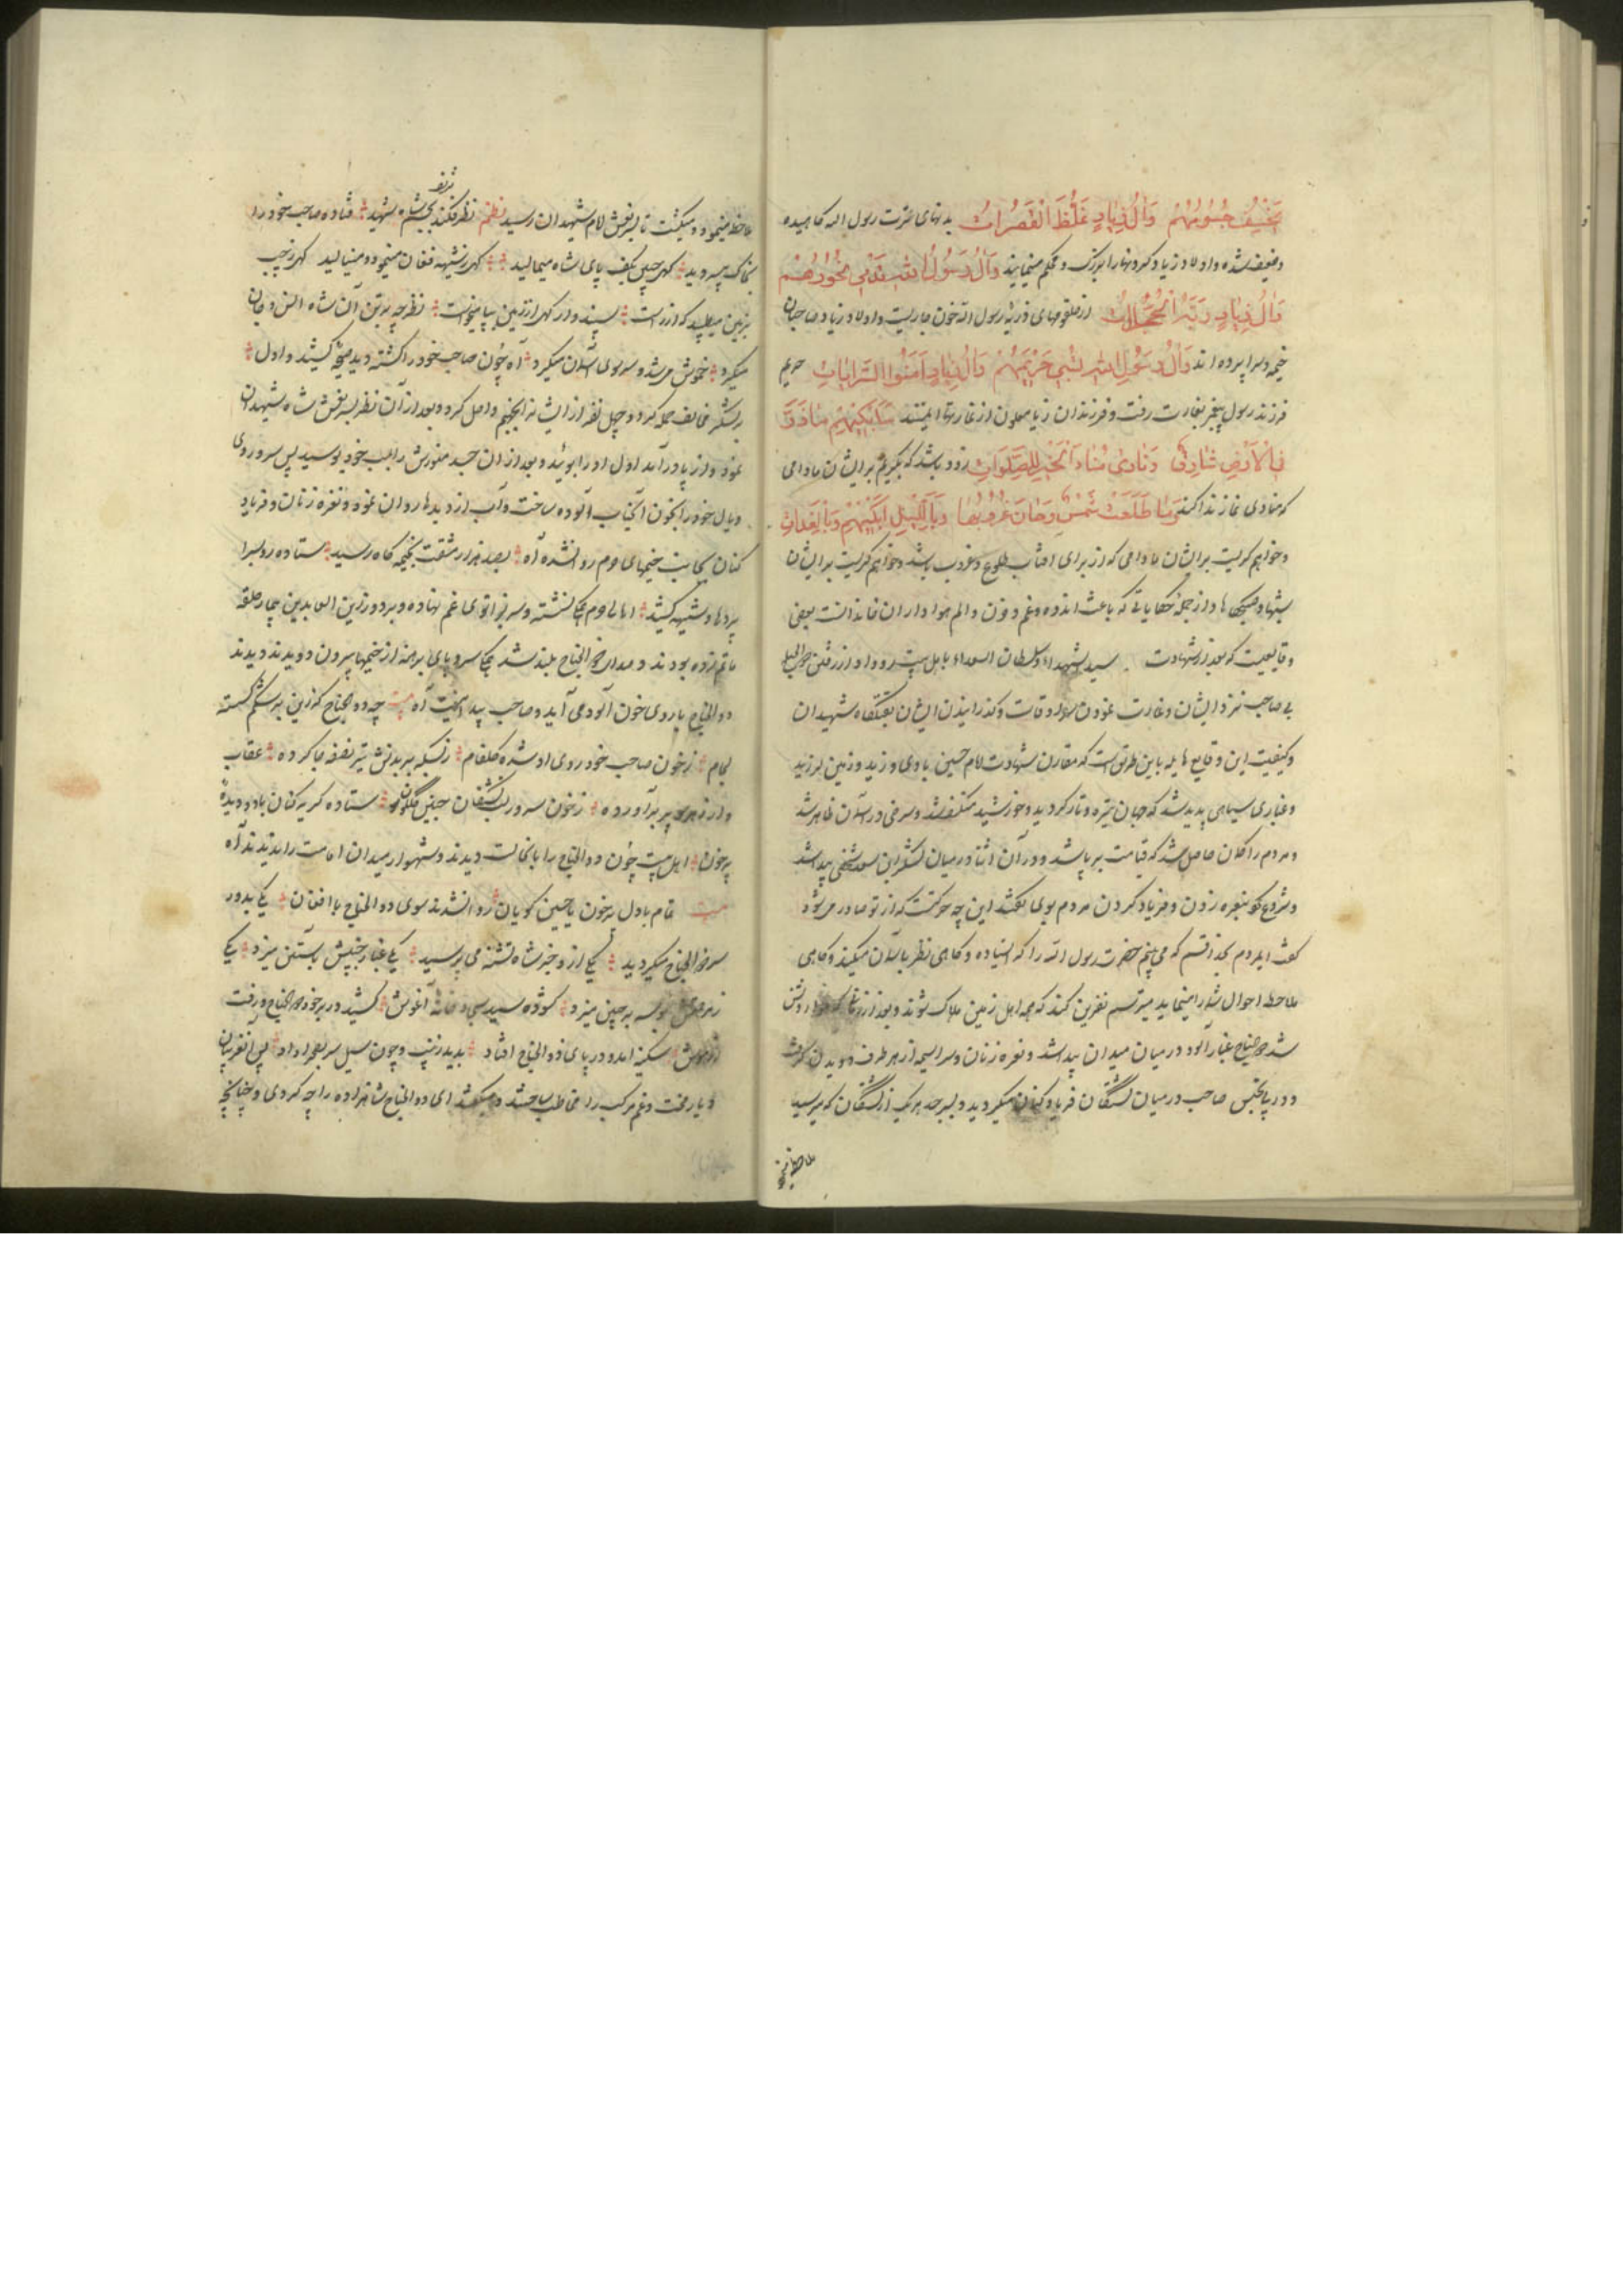 نحیف جسومهم وآل زیاد غلظ القصرات بدنهای عترت رسول الله کاهیده
وضعیف شده و اولاد زیاد کردنها را بزرک و محکم مینمایند وآل رسول الله تدمی نحورهم
وآل زیاد ربة الحجلات از حلقومهای ذریه رسول الله خون جاریست و اولاد زیاد صاحبان
خیمه و سراپرده اند وآل رسول الله تسبی حریمهم وآل زیاد آمنوا السربات حریم
فرزند رسول بغارت رفت و فرزندان زیاد ملعون از غارتها ایمنند سابکیهم ما ذر
فی الارض شارق ونادی مناد الخیر للصلوات زود باشد که بکریم بر ایشان مادامی
که منادی نماز ندا کند وما طلعت شمس وحان غروبها وباللیل ابکیهم وبالغدات
و خواهم کریست بر ایشان مادامی که از برای افتاب طلوع و غروب باشد و خواهم کریست بر ایشان
شبها و صبحها و از جمله حکایاتی که باعث اندوه و غم و حزن و الم هواداران خاندانست بعضی
وقایعیست که بعد از شهادت سید الشهداء و سلطان السعداء باهل بیت رو داد از رفتن ذو الجناح
بی صاحب نزد ایشان و غارت نمودن سرادقات و کذرانیدن ایشان بقتلکاه شهیدان
و کیفیت این وقایع هایله باین طریق است که مقارن شهادت امام حسین بادی وزید و زمین لرزید
و غباری سیاهی پدید شد که جهان تیره و تار کردید و خورشید منکسف شد و سرخی در آسمان ظاهر شد
و مردم را کمان حاصل شد که قیامت برپا شد و در آن اثنا در میان لشکر ابن سعد شخصی پیدا شد
و شروع کرد بنعره زدن و فریاد کردن مردم بوی گفتند این چه حرکتست که از تو صادر میشود
گفت ایمردم بخدا قسم که می بینم حضرت رسول الله را که ایستاده و کاهی نظر باسمان میکند و کاهی
ملاحظه احوال شما را مینماید میترسم نفرین کند که همه اهل زمین هلاک شوند و بعد از
شد ذو الجناح غبار آلود در میان میدان پیدا شد و نعره زنان و سراسیمه از هر طرف دویدن گرفت
و در پی تجسس صاحب در میان کشتکان فریاد کنان میکردید و بسر جسد هر یک از کشتکان که میرسید
ملاحظه مینمود
ملاحظه مینمود و میکشت تا بر نعش امام شهیدان رسید نظم نظر فکند بجسم شاه شهید فتاده صاحب خود را
بخاک میدید کهی جبین بکف پای شاه میمالید کهی ز شیهه فغان مینمود و مینالید کهی ز چپ
بزمین میطپید که از راست سپندوار کهی از زمین بپا میخاست نظر چه بر تن آن شاه انس و جان
میکرد خموش میشد و رو سوی آسمان میکرد آه چون صاحب خود را کشته دید صیحه کشید و اول
بر لشکر مخالف حمله کرد و چهل نفر از ایشانرا بجهنم واصل کرد و بعد از آن نظر بر نعش شاه شهیدان
نمود و از پا در آمد اول او را بوئید و بعد از آن جسد منورش را بلب خود بوسید پس سر و روی
و یال خود را بخون آنجناب آلوده ساخت و آب از دیدها روان نمود و نعره زنان و فریاد
کنان بجانب خیمهای حرم روانشد آه بصد هزار مشقت بخیمه کاه رسید ستاده رو بسرا
پردها و شیهه کشید اهالی حرم یکجا نشسته و سر بزانوی غم نهاده و بر دور زین العابدین بیمار حلقه
ماتم زده بودند و صدای ذو الجناح بلند شد یکجا سر و پای برهنه از خیمها بیرون دویدند دیدند
ذو الجناح با روی خون آلود می آید و صاحب پیدا نیست آه بیت چه ذو الجناح که زین بر شکم گسسته
لجام ز خون صاحب خود روی او شده کلفام ز بسکه بر بدنش تیر نصفه جا کرده عقاب
وار پر بر آورده ز خون سرور لب تشنکان جبین کلکون ستاده کریه کنان با دو دیدهٔ
پر خون اهل بیت چون ذو الجناح را بانحالت دیدند و شهسوار میدان امامت را ندیدند آه
بیت تمام با دل پر خون یا حسین گویان روانشدند سوی ذو الجناح با افغان یکی بدور
سر ذو الجناح میکردید یکی از و خبر شاه تشنه می پرسید یکی غبار جبینش بآستین میزد یکی
ز مهر بوسه بر جبین میزد کشوده سید سجاد آغوش کشید در بر خود ذو الجناح و رفت
از هوش سکینه آمد و در پای ذو الجناح افتاد بدید زینب و چون سیل سر بصحرا داد پس آنغریبان
دیار محنت و غم مرکب را مخاطب ساختند و میکفتند ای ذو الجناح شاهزاده را چه کردی و چنانچه